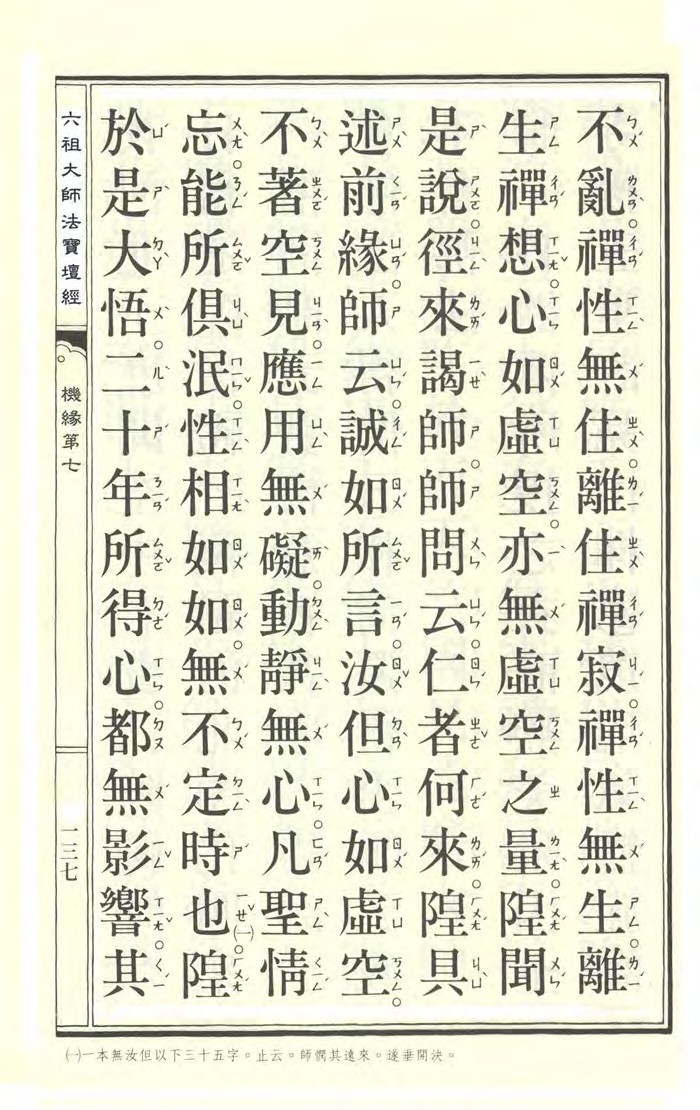 不亂。禪性無住。離住禪寂。禪性無生。離
生禪想。心如虛空。亦無虛空之量。隍聞
是說。徑來謁師。師問云。仁者何來。隍具
述前緣。師云。誠如所言。汝但心如虛空。
不著空見。應用無礙。動靜無心。凡聖情
忘。能所俱泯。性相如如。無不定時也㈠。隍
於是大悟。二十年所得心。都無影響。其
六祖大師法寶壇經
機緣第七
一三七
㈠一本無汝但以下三十五字。止云。師憫其遠來。遂垂開決。